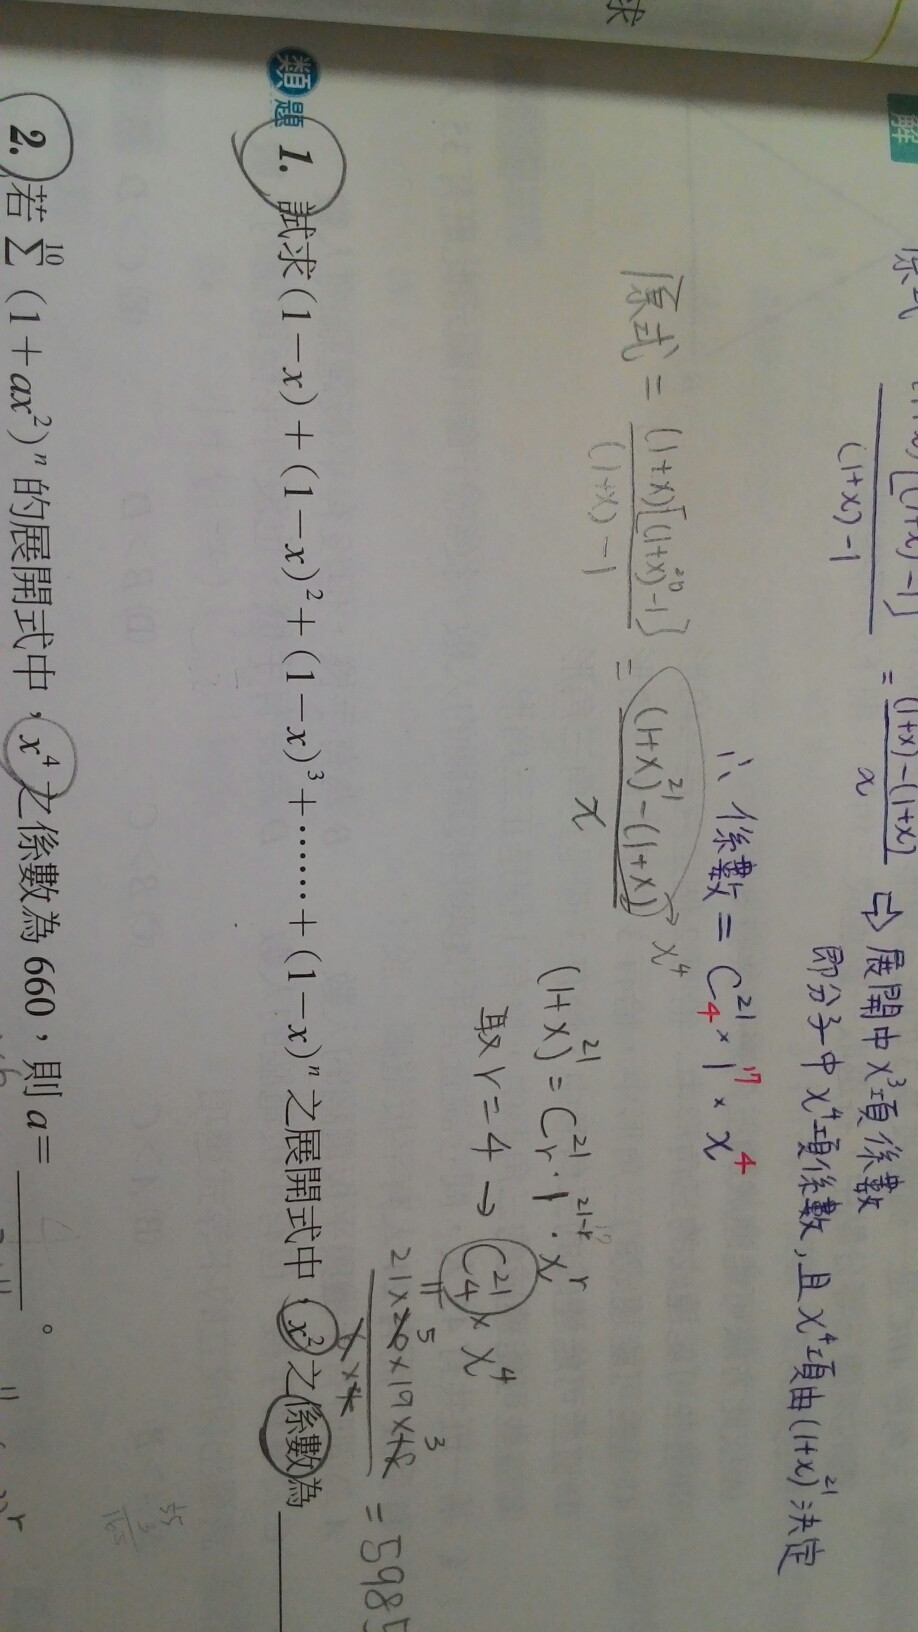 求
解
原式 = (1+x)[(1+x)²⁰-1] / (1+x)-1 = (1+x)-(1+x) / x ⇨ 展開中 x³項係數
即分子中 x⁴項係數,且 x⁴項由(1+x)²¹決定
∴ 係數 = C²¹₄ × 1¹⁷ × x⁴
原式 = (1+x)[(1+x)²⁰-1] / (1+x)-1 = (1+x)²¹-(1+x) / x → x⁴
(1+x)²¹ = C²¹ᵣ · 1²¹⁻ʳ · xʳ
取 r=4 → C²¹₄ × x⁴
21×20×19×18 = 5985
類題 1. 試求(1-x)+(1-x)²+(1-x)³+……+(1-x)ⁿ之展開式中,x²之係數為
2. 若 Σ¹⁰ (1+ax²)ⁿ的展開式中,x⁴之係數為660,則a=______。